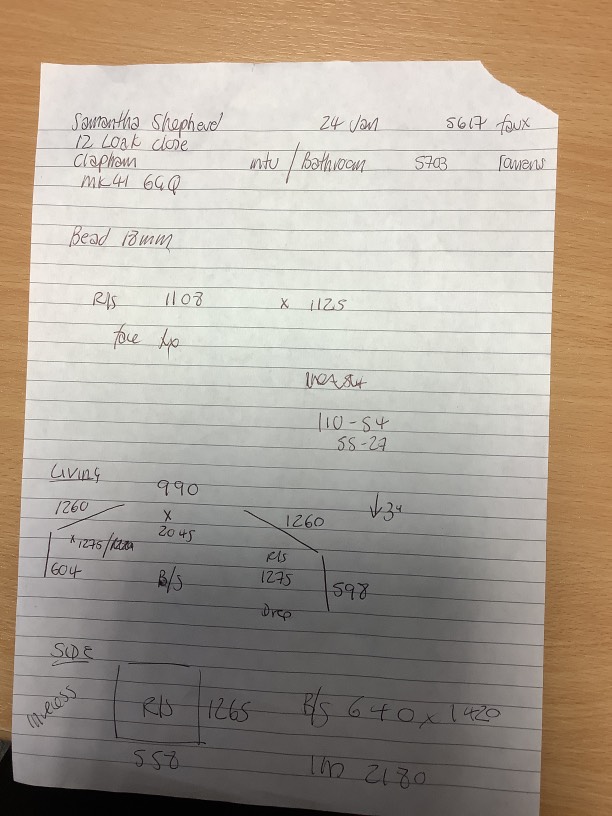 Samantha Shepherd 24 Jan 5617 faux
12 Loak close
Clapham mtu / Bathroom 5703
MK41 6GQ
Bead 18mm
R/S 1108 x 1125
face
110-54
55-27
Living
990
1260 x 1260 ↓3"
2045
x 1275/
R/S
604 B/S 1275 598
Drop
SIDE
R/S 1265 B/S 640 x 1420
558 2180